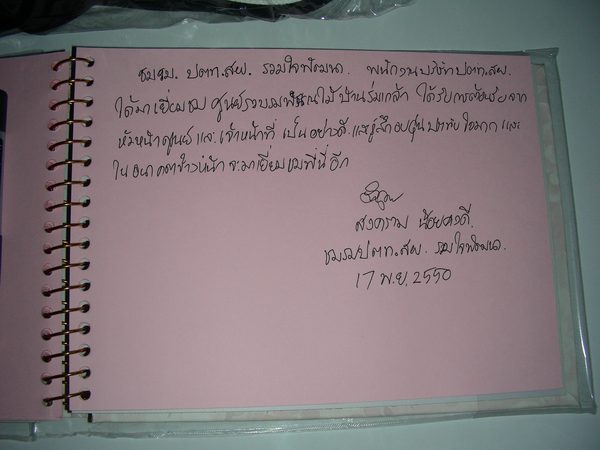 ชมรม ปตท.สผ. รวมใจพัฒนา. พนักงานบริษัทปตท.สผ.
ได้มาเยี่ยมชม ศูนย์รวบรวมพันธุ์ไม้ บ้านร่มเกล้า ได้รับการต้อนรับ จาก
หัวหน้าศูนย์ และ เจ้าหน้าที่ เป็น อย่างดี และรู้สึกอบอุ่นประทับใจมาก และ
ใน อนาคตข้างหน้า จะมาเยี่ยม ที่นี่ อีก
สงคราม
ชมรมปตท.สผ. รวมใจพัฒนา.
17 พ.ย. 2550